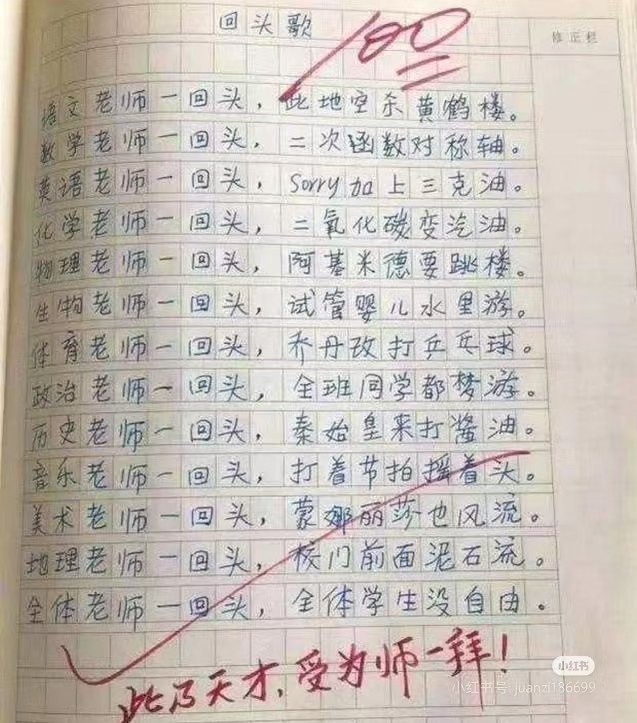 回头歌
100
修正栏
语文老师一回头，此地空杀黄鹤楼。
数学老师一回头，二次函数对称轴。
英语老师一回头，Sorry加上三克油。
化学老师一回头，二氧化碳变汽油。
物理老师一回头，阿基米德要跳楼。
生物老师一回头，试管婴儿水里游。
体育老师一回头，乔丹改打乒乓球。
政治老师一回头，全班同学都梦游。
历史老师一回头，秦始皇来打酱油。
音乐老师一回头，打着节拍摇着头。
美术老师一回头，蒙娜丽莎也风流。
地理老师一回头，校门前面泥石流。
全体老师一回头，全体学生没自由。
此乃天才，受为师一拜！
小红书
小红书号 juanzi186699